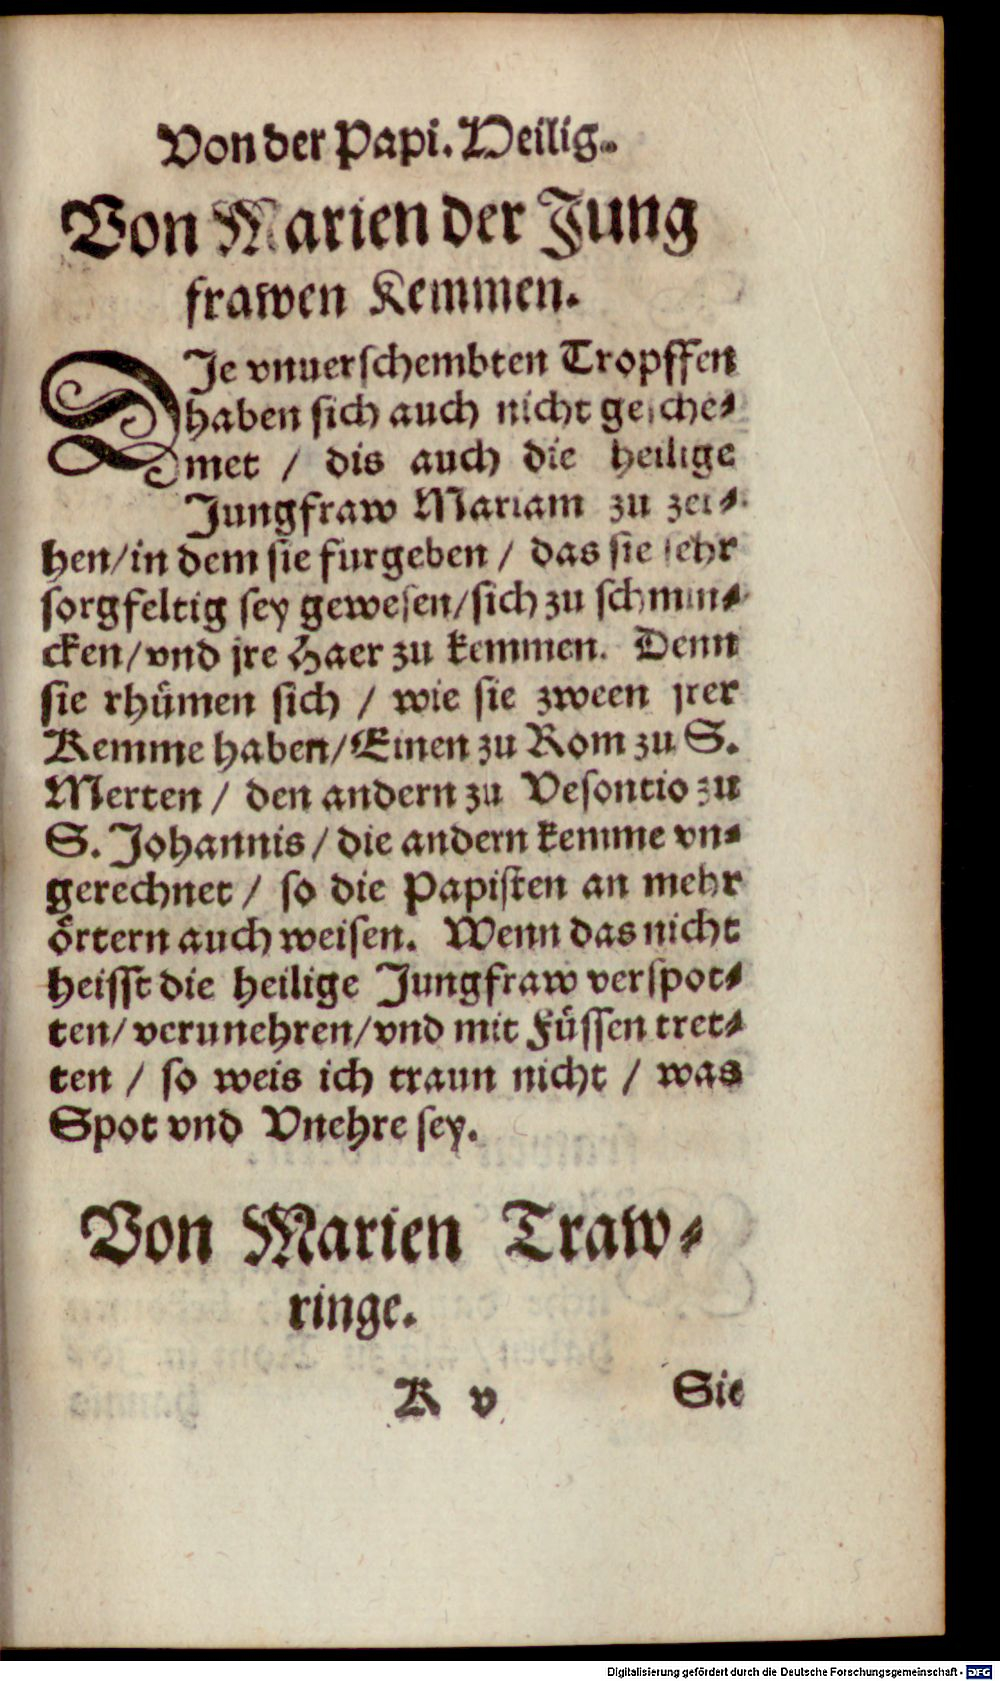 Von der Papi. Heilig.
Von Marien der Jung
frawen Kemmen.
DIe vnuerschembten Tropffen
haben sich auch nicht gesche⸗
met / dis auch die heilige
Jungfraw Mariam zu zei⸗
hen/in dem sie furgeben / das sie sehr
sorgfeltig sey gewesen/sich zu schmin⸗
cken/vnd jre Haer zu kemmen. Denn
sie rhümen sich / wie sie zween jrer
Kemme haben/Einen zu Rom zu S.
Merten / den andern zu Vesontio zu
S. Johannis / die andern kemme vn⸗
gerechnet / so die Papisten an mehr
örtern auch weisen. Wenn das nicht
heisst die heilige Jungfraw verspot⸗
ten/verunehren/vnd mit Füssen tret⸗
ten / so weis ich traun nicht / was
Spot vnd Vnehre sey.
Von Marien Traw⸗
ringe.
K v Sie
Digitalisierung gefördert durch die Deutsche Forschungsgemeinschaft - DFG